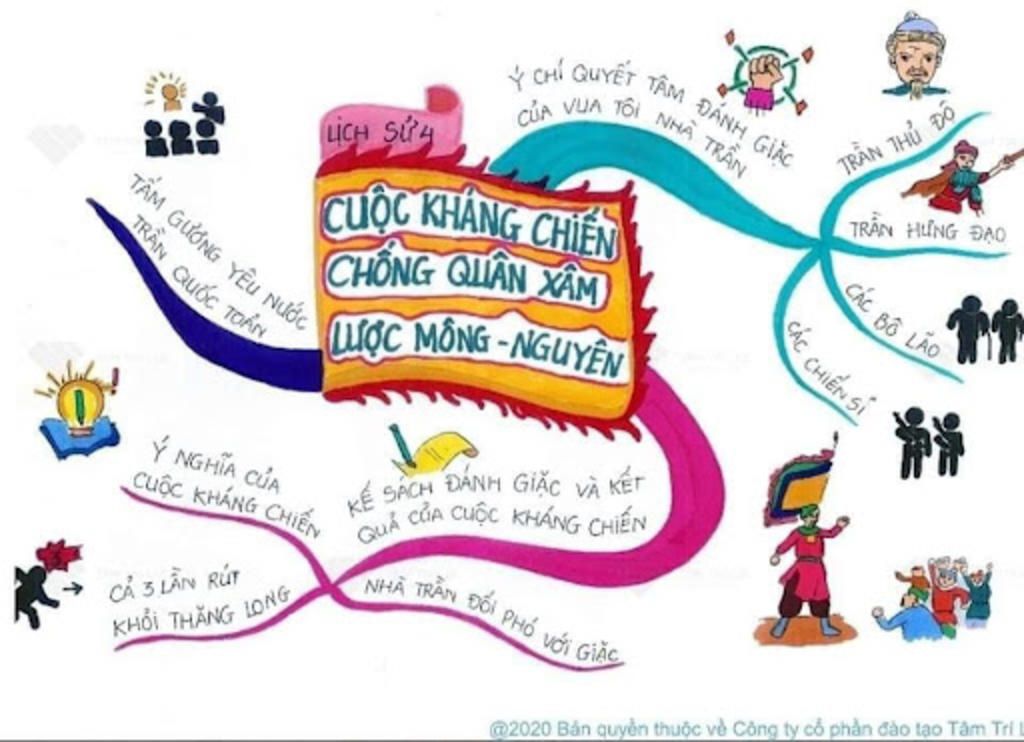 LỊCH SỬ 4
CUỘC KHÁNG CHIẾN
CHỐNG QUÂN XÂM
LƯỢC MÔNG - NGUYÊN
Ý CHÍ QUYẾT TÂM ĐÁNH GIẶC
CỦA VUA TÔI NHÀ TRẦN
TRẦN THỦ ĐỘ
TRẦN HƯNG ĐẠO
CÁC BÔ LÃO
CÁC CHIẾN SĨ
KẾ SÁCH ĐÁNH GIẶC VÀ KẾT
QUẢ CỦA CUỘC KHÁNG CHIẾN
NHÀ TRẦN ĐỐI PHÓ VỚI GIẶC
CẢ 3 LẦN RÚT
KHỎI THĂNG LONG
Ý NGHĨA CỦA
CUỘC KHÁNG CHIẾN
TẤM GƯƠNG YÊU NƯỚC
TRẦN QUỐC TOẢN
@2020 Bản quyền thuộc về Công ty cổ phần đào tạo Tâm Trí L